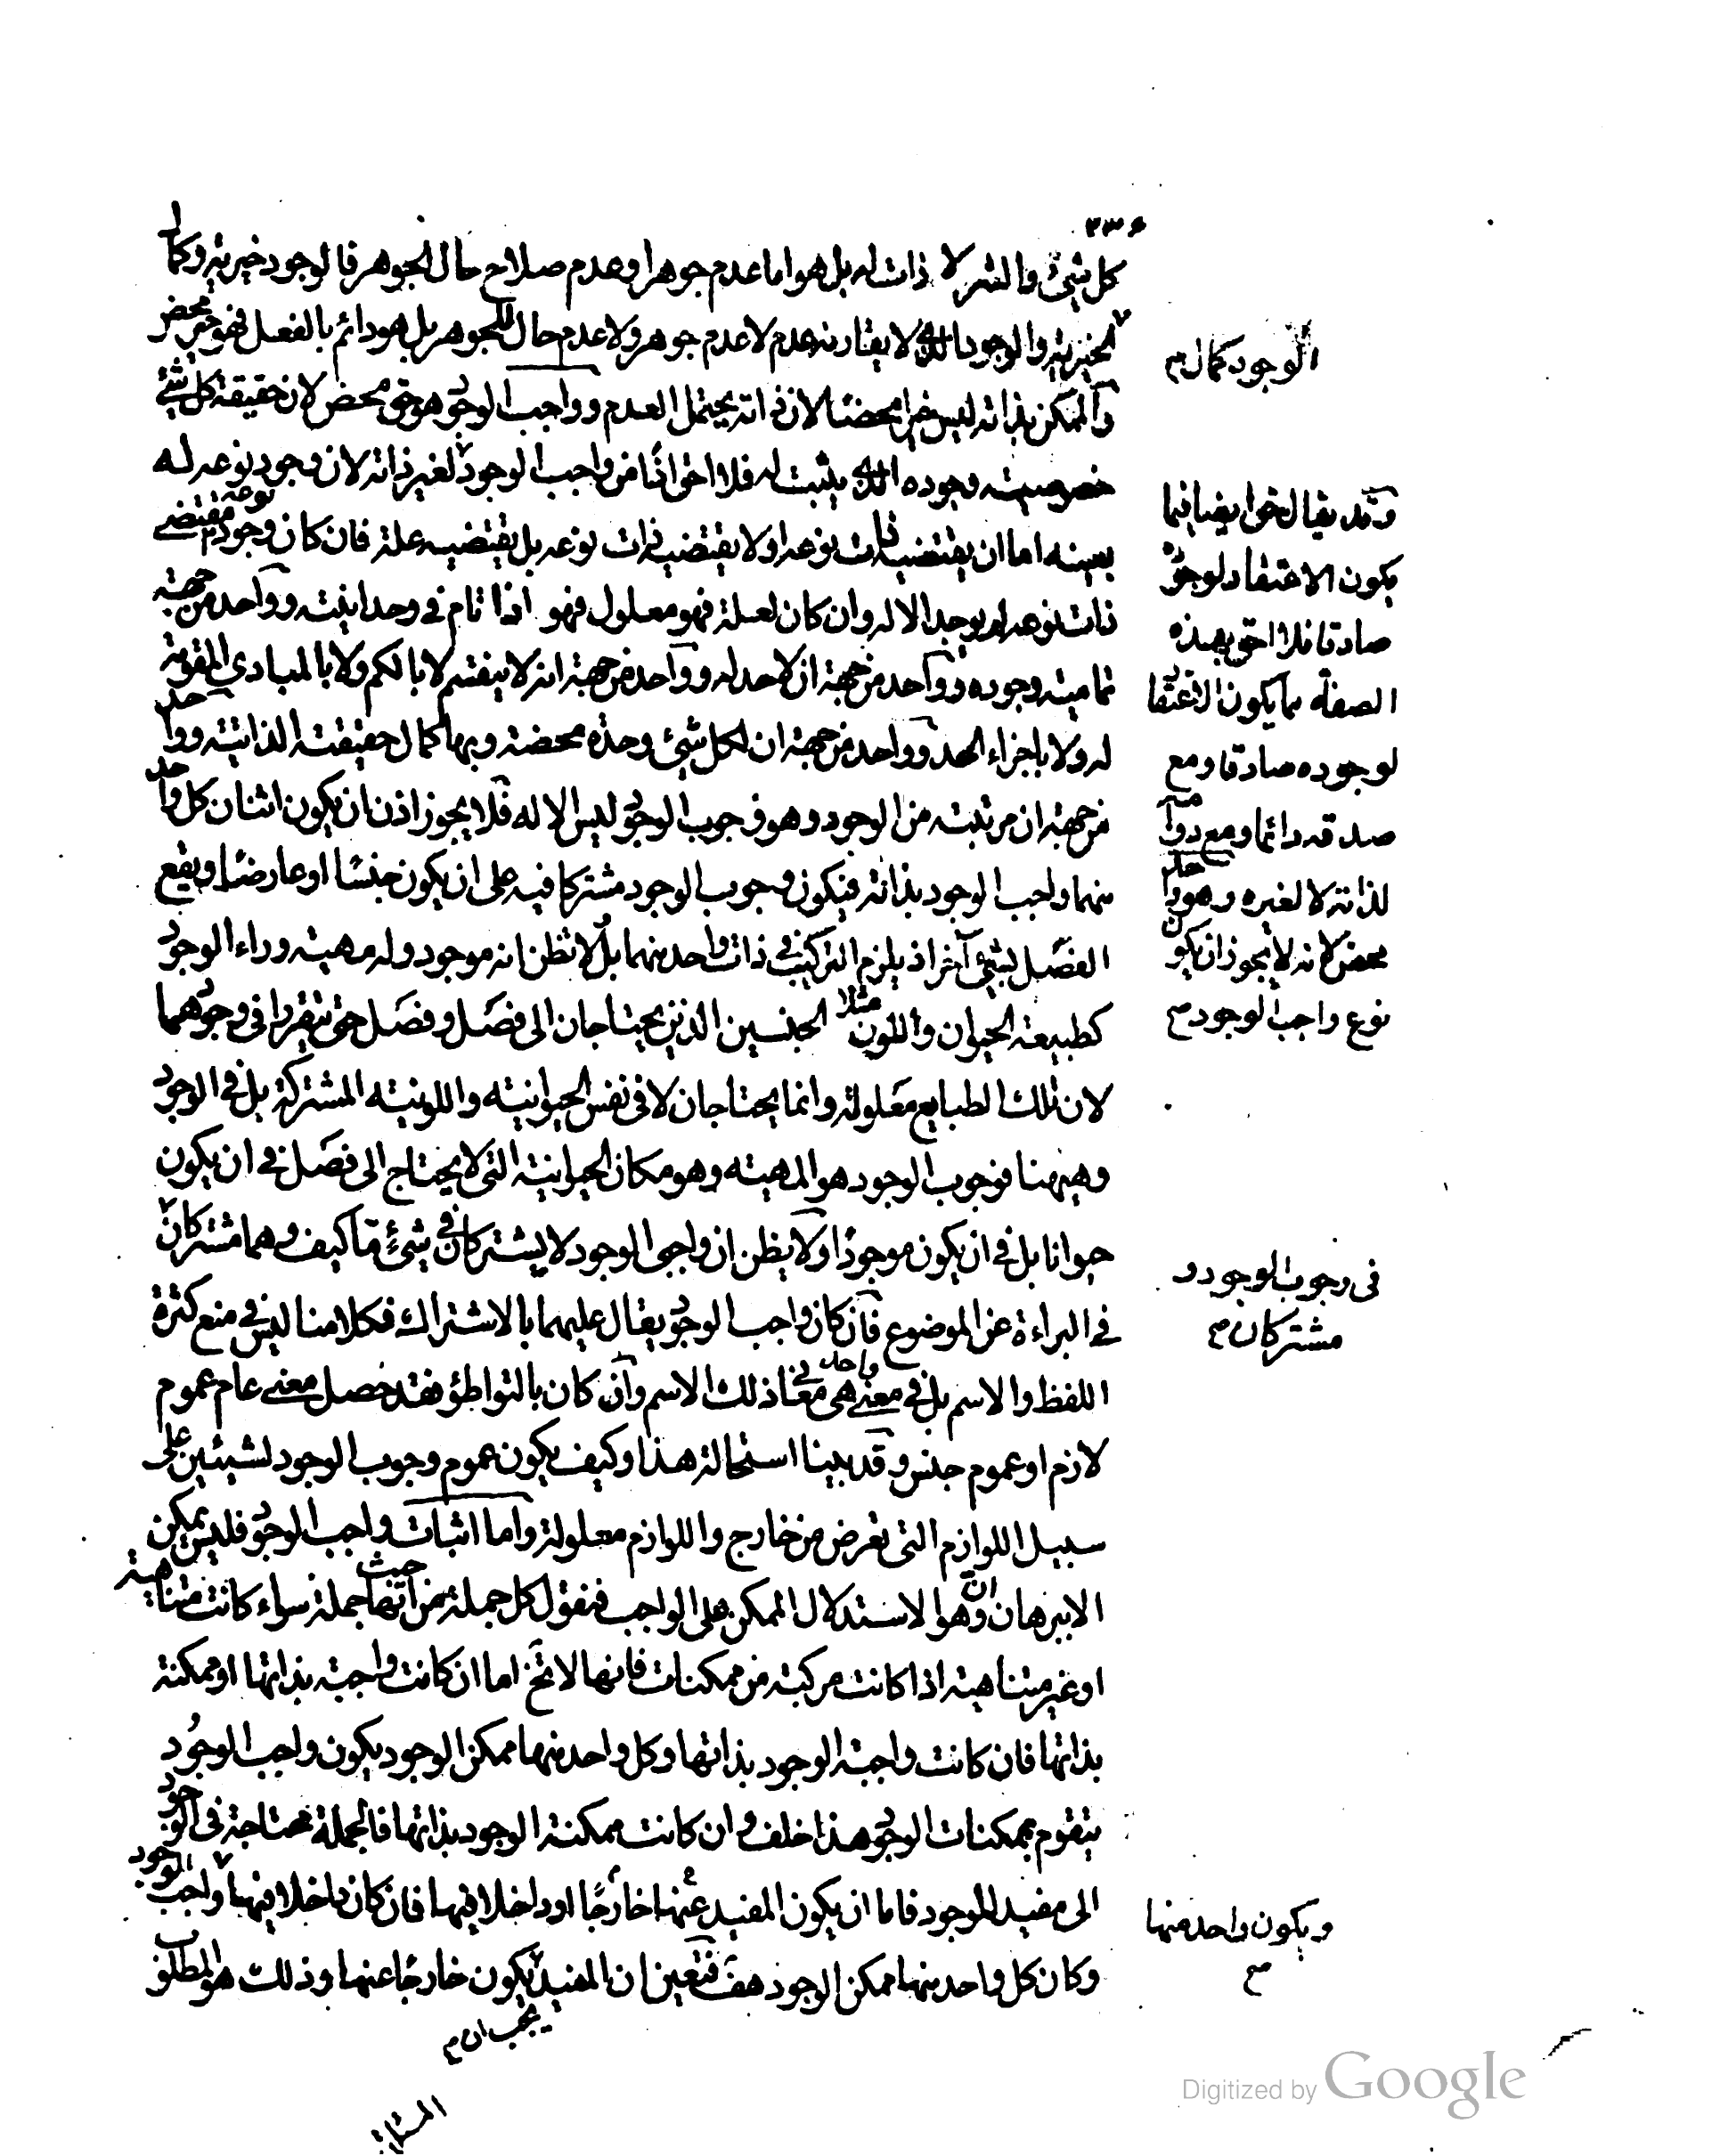 ٣٣٤
كل شئ والشر لا ذات له بل هو اما عدم جوهر او عدم صلاح حال الجوهر فالوجود خيرية وكمال
الخيرية والوجود الذى لا يقارنه عدم لا عدم جوهر ولا عدم حال للجوهر بل هو دائم بالفعل فهو خير محض
والممكن بذاته ليس خيرا محضا لان ذاته يحتمل العدم وواجب الوجود هو حق محض لان حقيقة كل شئ
خصوصية وجوده الذى يثبت له فلا احق اذًا من واجب الوجود لغير ذاته لان وجود نوعه له
بعينه اما ان يقتضيه ذات نوعه او لا يقتضيه ذات نوعه بل يقتضيه علة فان كان وجود نوعه مقتضى
ذات نوعه لم يوجد الا له وان كان لعلة فهو معلول فهو اذا تام فى وحدانيته وواحد من جهة
تمامية وجوده وواحد من جهة ان لا حد له وواحد من جهة انه لا ينقسم لا بالكم ولا بالمبادى المقومة
له ولا باجزاء الحد وواحد من جهة ان لكل شئ وحدة محضة وبها كمال حقيقته الذاتية وواحد
من جهة ان مرتبته من الوجود وهو وجوب الوجود ليس الا له فلا يجوز اذن ان يكون اثنان كل واحد
منهما واجب الوجود بذاته فيكون وجوب الوجود مشتركا فيه على ان يكون جنسا او عارضا ويقع
الفصل بشئ آخر اذ يلزم التركيب فى ذات واحد منهما بل لا تظن انه موجود وله مهية وراء الوجود
كطبيعة الحيوان واللون مثلا الجنسين الذين يحتاجان الى فصل وفصل حتى يتقررا فى وجودهما
لان تلك الطبايع معلولة وانما يحتاجان لا فى نفس الحيوانية واللونية المشتركة بل فى الوجود
وهيهنا فوجوب الوجود هو المهية وهو مكان الحيوانية التى لا يحتاج الى فصل فى ان يكون
حيوانا بل فى ان يكون موجودًا ولا يظن ان واجبى الوجود لا يشتركان فى شئ ما كيف وهما مشتركان
فى البراءة عن الموضوع فان كان واجب الوجود يقال عليهما بالاشتراك فكلامنا ليس فى منع كثرة
اللفظ والاسم بل فى معنى واحد من معانى ذلك الاسم وان كان بالتواطؤ فقد حصل معنى عام عموم
لازم او عموم جنس وقد بينا استحالة هذا وكيف يكون عموم وجوب الوجود لشيئين على
سبيل اللوازم التى تعرض من خارج واللوازم معلولة واما اثبات واجب الوجود فليس يمكن
الا ببرهان ان وهو الاستدلال الممكن على الواجب فنقول كل جملة من حيث انها جملة سواء كانت متناهية
او غير متناهية اذا كانت مركبة من ممكنات فانها لا تخ اما ان كانت واجبة بذاتها او ممكنة
بذاتها فان كانت واجبة الوجود بذاتها وكل واحد منها ممكن الوجود يكون واجب الوجود
يتقوم بممكنات الوجود هذا خلف وان كانت ممكنة الوجود بذاتها فالجملة محتاجة فى الوجود
الى مفيد للوجود فاما ان يكون المفيد عنها خارجًا او داخلا فيها فان كان داخلا فيها واجب الوجود
وكان كل واحد منها ممكن الوجود هف فتعين ان المفيد يكون خارجًا عنها وذلك هو المطلوب
يجب ان م
الوجود كمال م
وقد يقال حق ايضا فيما
يكون الاعتقاد لوجوده
صادقا فلا احق بهذه
الصفة مما يكون الاعتقاد
لوجوده صادقا ومع
صدقه دائما ومع دوامه
لذاته لا لغيره وهو واحد
محض لانه لا يجوز ان يكون
نوع واجب الوجود م
فى وجوب الوجود و
مشتركان م
ويكون واحد منها
م
Digitized by Google